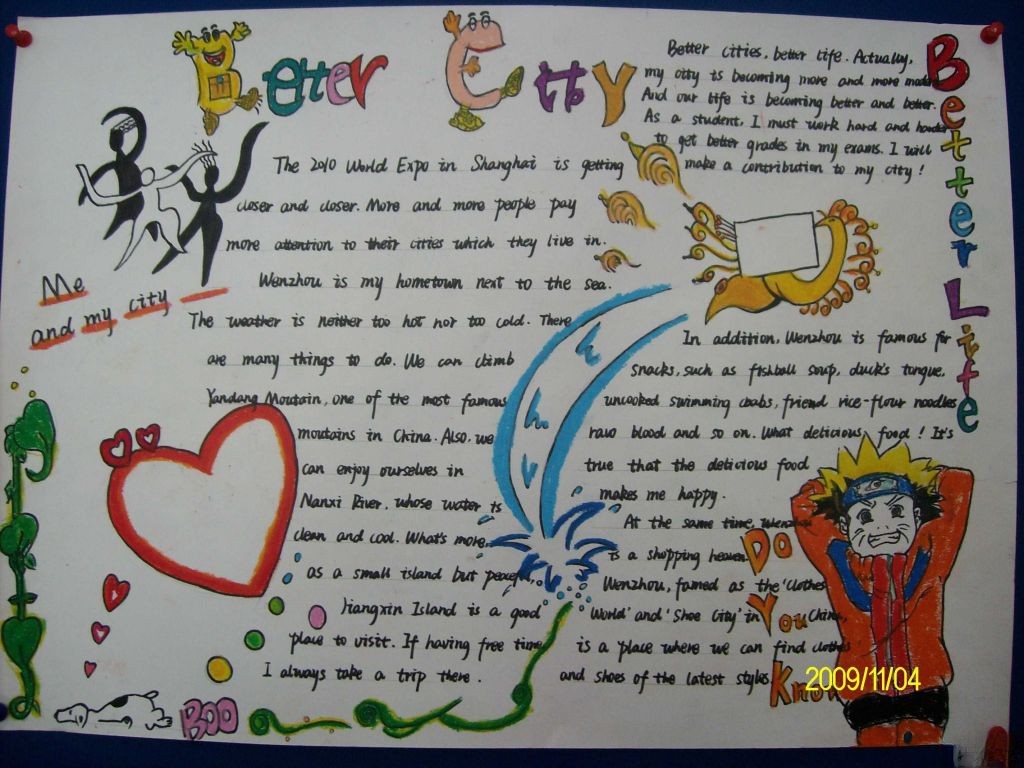 Better City
Better Life
Me
and my city
The 2010 World Expo in Shanghai is getting
closer and closer. More and more people pay
more attention to their cities which they live in.
Wenzhou is my hometown next to the sea.
The weather is neither too hot nor too cold. There
are many things to do. We can climb
Yandang Moutain, one of the most famous
moutains in China. Also, we
can enjoy ourselves in
Nanxi River, whose water is
clean and cool. What's more,
as a small island but peaceful,
Jiangxin Island is a good
place to visit. If having free time
I always take a trip there.
Better cities, better life. Actually,
my city is becoming more and more
And our life is becoming better and better.
As a student, I must work hard and harder
to get better grades in my exams. I will
make a contribution to my city!
In addition, Wenzhou is famous for
snacks, such as fishball soup, duck's tongue,
uncooked swimming cbabs, friend rice-flour noodles
raw blood and so on. What delicious food! It's
true that the delicious food
makes me happy.
At the same time, Wenzhou
is a shopping heaven.
Wenzhou, famed as the 'Clothes
World' and 'Shoe City' in China,
is a place where we can find clothes
and shoes of the latest styles.
Do
You
Know
BOO
2009/11/04